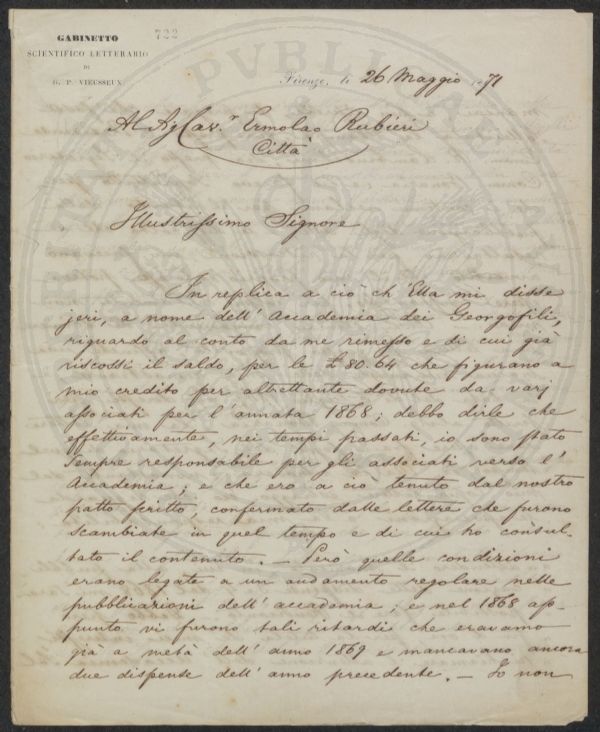 GABINETTO
SCIENTIFICO LETTERARIO
DI
G. P. VIEUSSEUX
722
Firenze, li 26 Maggio 1871
Al Sig Cav.r Ermolao Rubieri
Città
Illustrissimo Signore
In replica a ciò ch'Ella mi disse
jeri, a nome dell'Accademia dei Georgofili,
riguardo al conto da me rimesso e di cui già
riscossi il saldo, per le £ 80.64 che figurano a
mio credito per altrettante dovute da varj
associati per l'annata 1868; debbo dirle che
effettivamente, nei tempi passati, io sono stato
sempre responsabile per gli associati verso l'
Accademia; e che ero a ciò tenuto dal nostro
patto scritto, confermato dalle lettere che furono
scambiate in quel tempo e di cui ho consul-
tato il contenuto. _ Però quelle condizioni
erano legate a un andamento regolare nelle
pubblicazioni dell'accademia; e nel 1868 ap-
punto vi furono tali ritardi che eravamo
già a metà dell'anno 1869 e mancavano ancora
due dispense dell'anno precedente. _ Io non